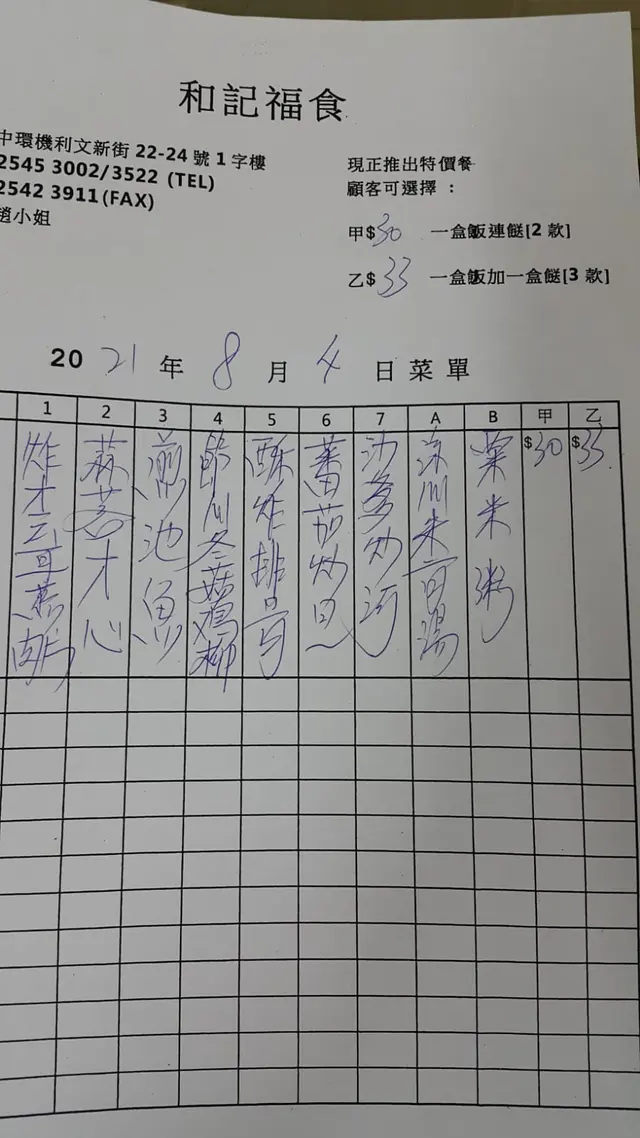 和記福食
中環機利文新街 22-24 號 1 字樓
2545 3002/3522 (TEL)
2542 3911(FAX)
趙小姐
現正推出特價餐
顧客可選擇 :
甲$30 一盒飯連餸[2 款]
乙$33 一盒飯加一盒餸[3 款]
2021 年 8 月 4 日菜單
1 2 3 4 A B 甲 乙
5 6 7
炸
蒜蓉才心
煎池魚
冬菇鸡柳
酥炸排骨
蕃茄炒旦
沙爹炒河
湯
粟米粥
$30
$33